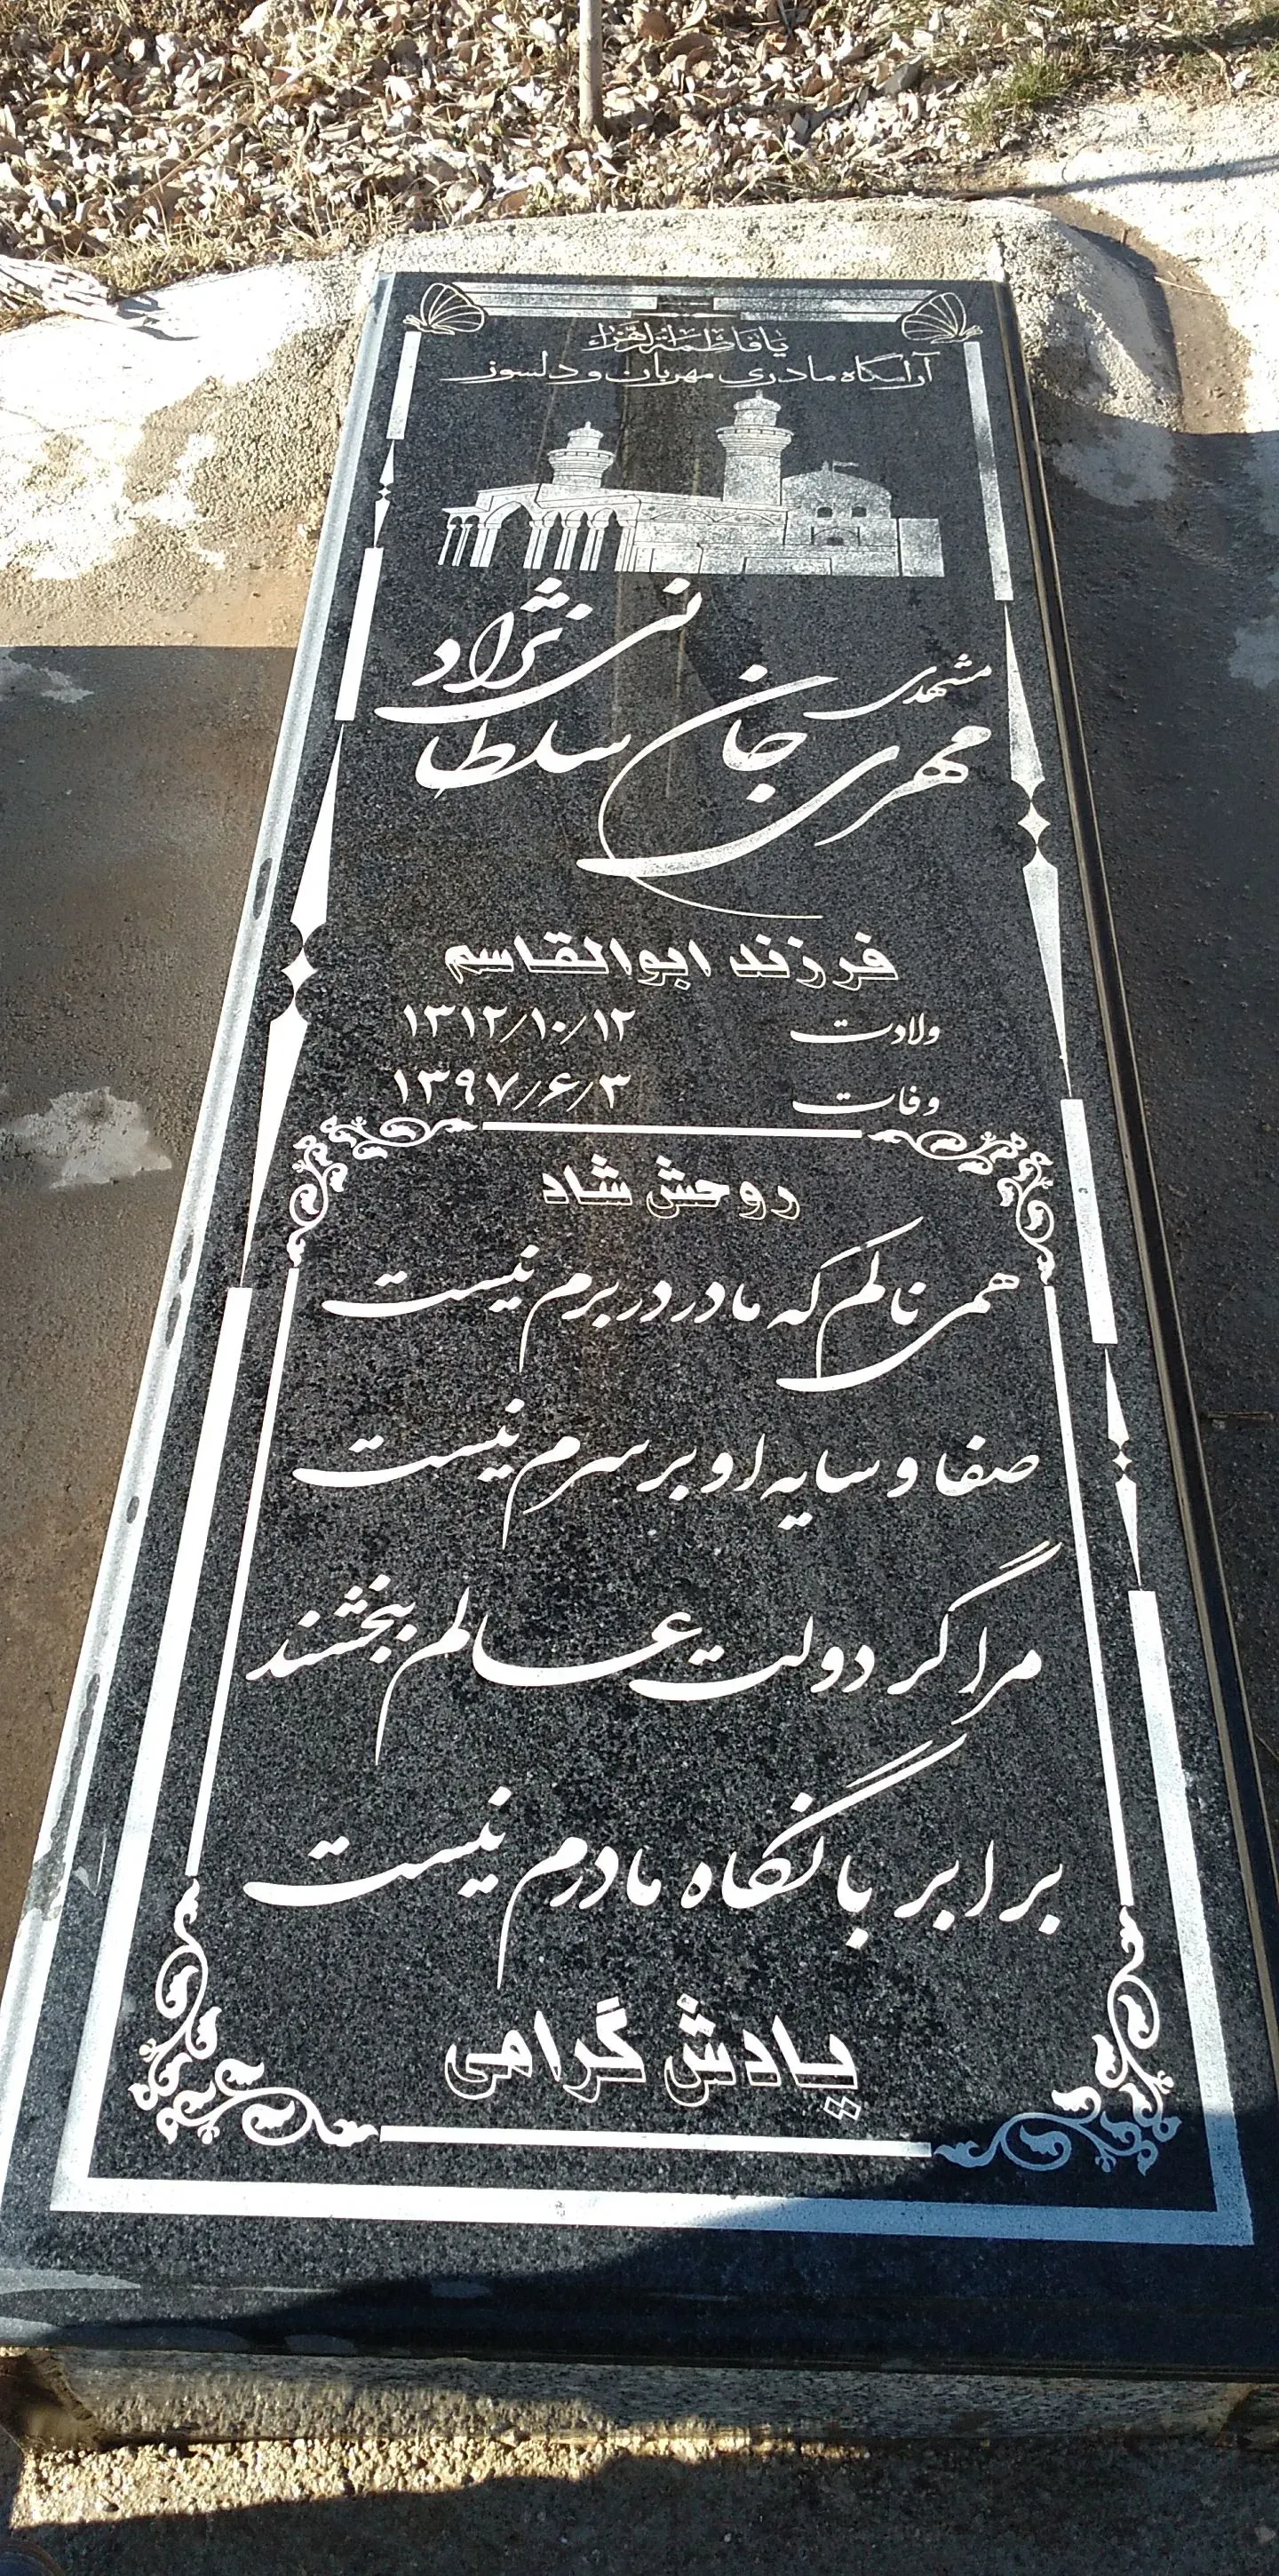 یا فاطمة الزهراء
آرامگاه مادری مهربان و دلسوز
مشهدی
مهری جان سلطانی نژاد
فرزند ابوالقاسم
ولادت ۱۳۱۲/۱۰/۱۲
وفات ۱۳۹۷/۶/۳
روحش شاد
همی نالم که مادر در برم نیست
صفا و سایه او بر سرم نیست
مرا گر دولت عالم ببخشند
برابر با نگاه مادرم نیست
یادش گرامی